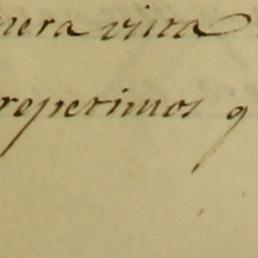 nera vitra
reperimos q